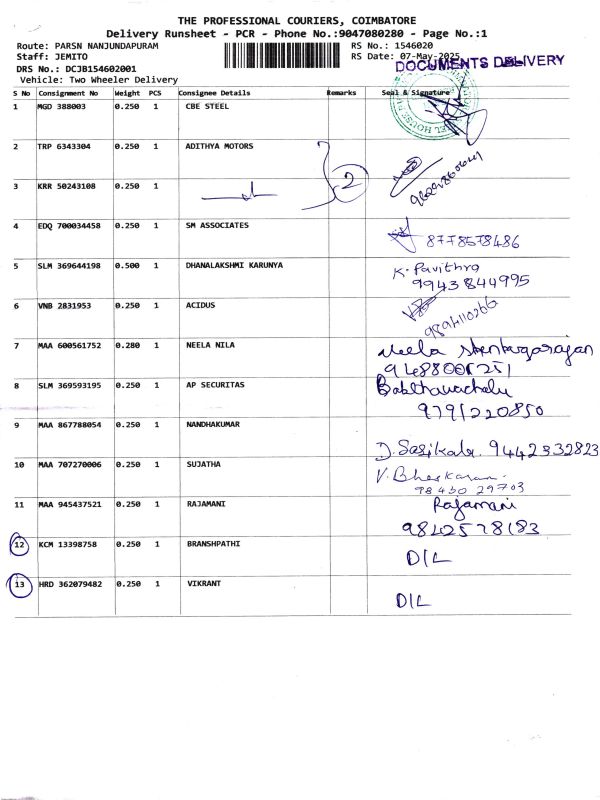 THE PROFESSIONAL COURIERS, COIMBATORE
Delivery Runsheet - PCR - Phone No.:9047080280 - Page No.:1
Route: PARSN NANJUNDAPURAM
RS No.: 1546020
Staff: JEMITO
RS Date: 07-May-2025
DRS No.: DCJB154602001
DOCUMENTS DELIVERY
Vehicle: Two Wheeler Delivery
S No Consignment No Weight PCS Consignee Details Remarks Seal & Signature
1 MGD 388003 0.250 1 CBE STEEL
2 TRP 6343304 0.250 1 ADITHYA MOTORS
2
3 KRR 50243108 0.250 1
4 EDQ 700034458 0.250 1 SM ASSOCIATES
8778578486
5 SLM 369644198 0.500 1 DHANALAKSHMI KARUNYA
K. Pavithra
9943844995
6 VNB 2831953 0.250 1 ACIDUS
7 MAA 600561752 0.280 1 NEELA NILA
Neela
8 SLM 369593195 0.250 1 AP SECURITAS
9791220850
9 MAA 867788054 0.250 1 NANDHAKUMAR
D. Sasikala. 9442332823
10 MAA 707270006 0.250 1 SUJATHA
V. Bhaskaran.
98430 29703
11 MAA 945437521 0.250 1 RAJAMANI
Rajamani
9842578183
12 KCM 13398758 0.250 1 BRANSHPATHI
D/L
13 HRD 362079482 0.250 1 VIKRANT
D/L